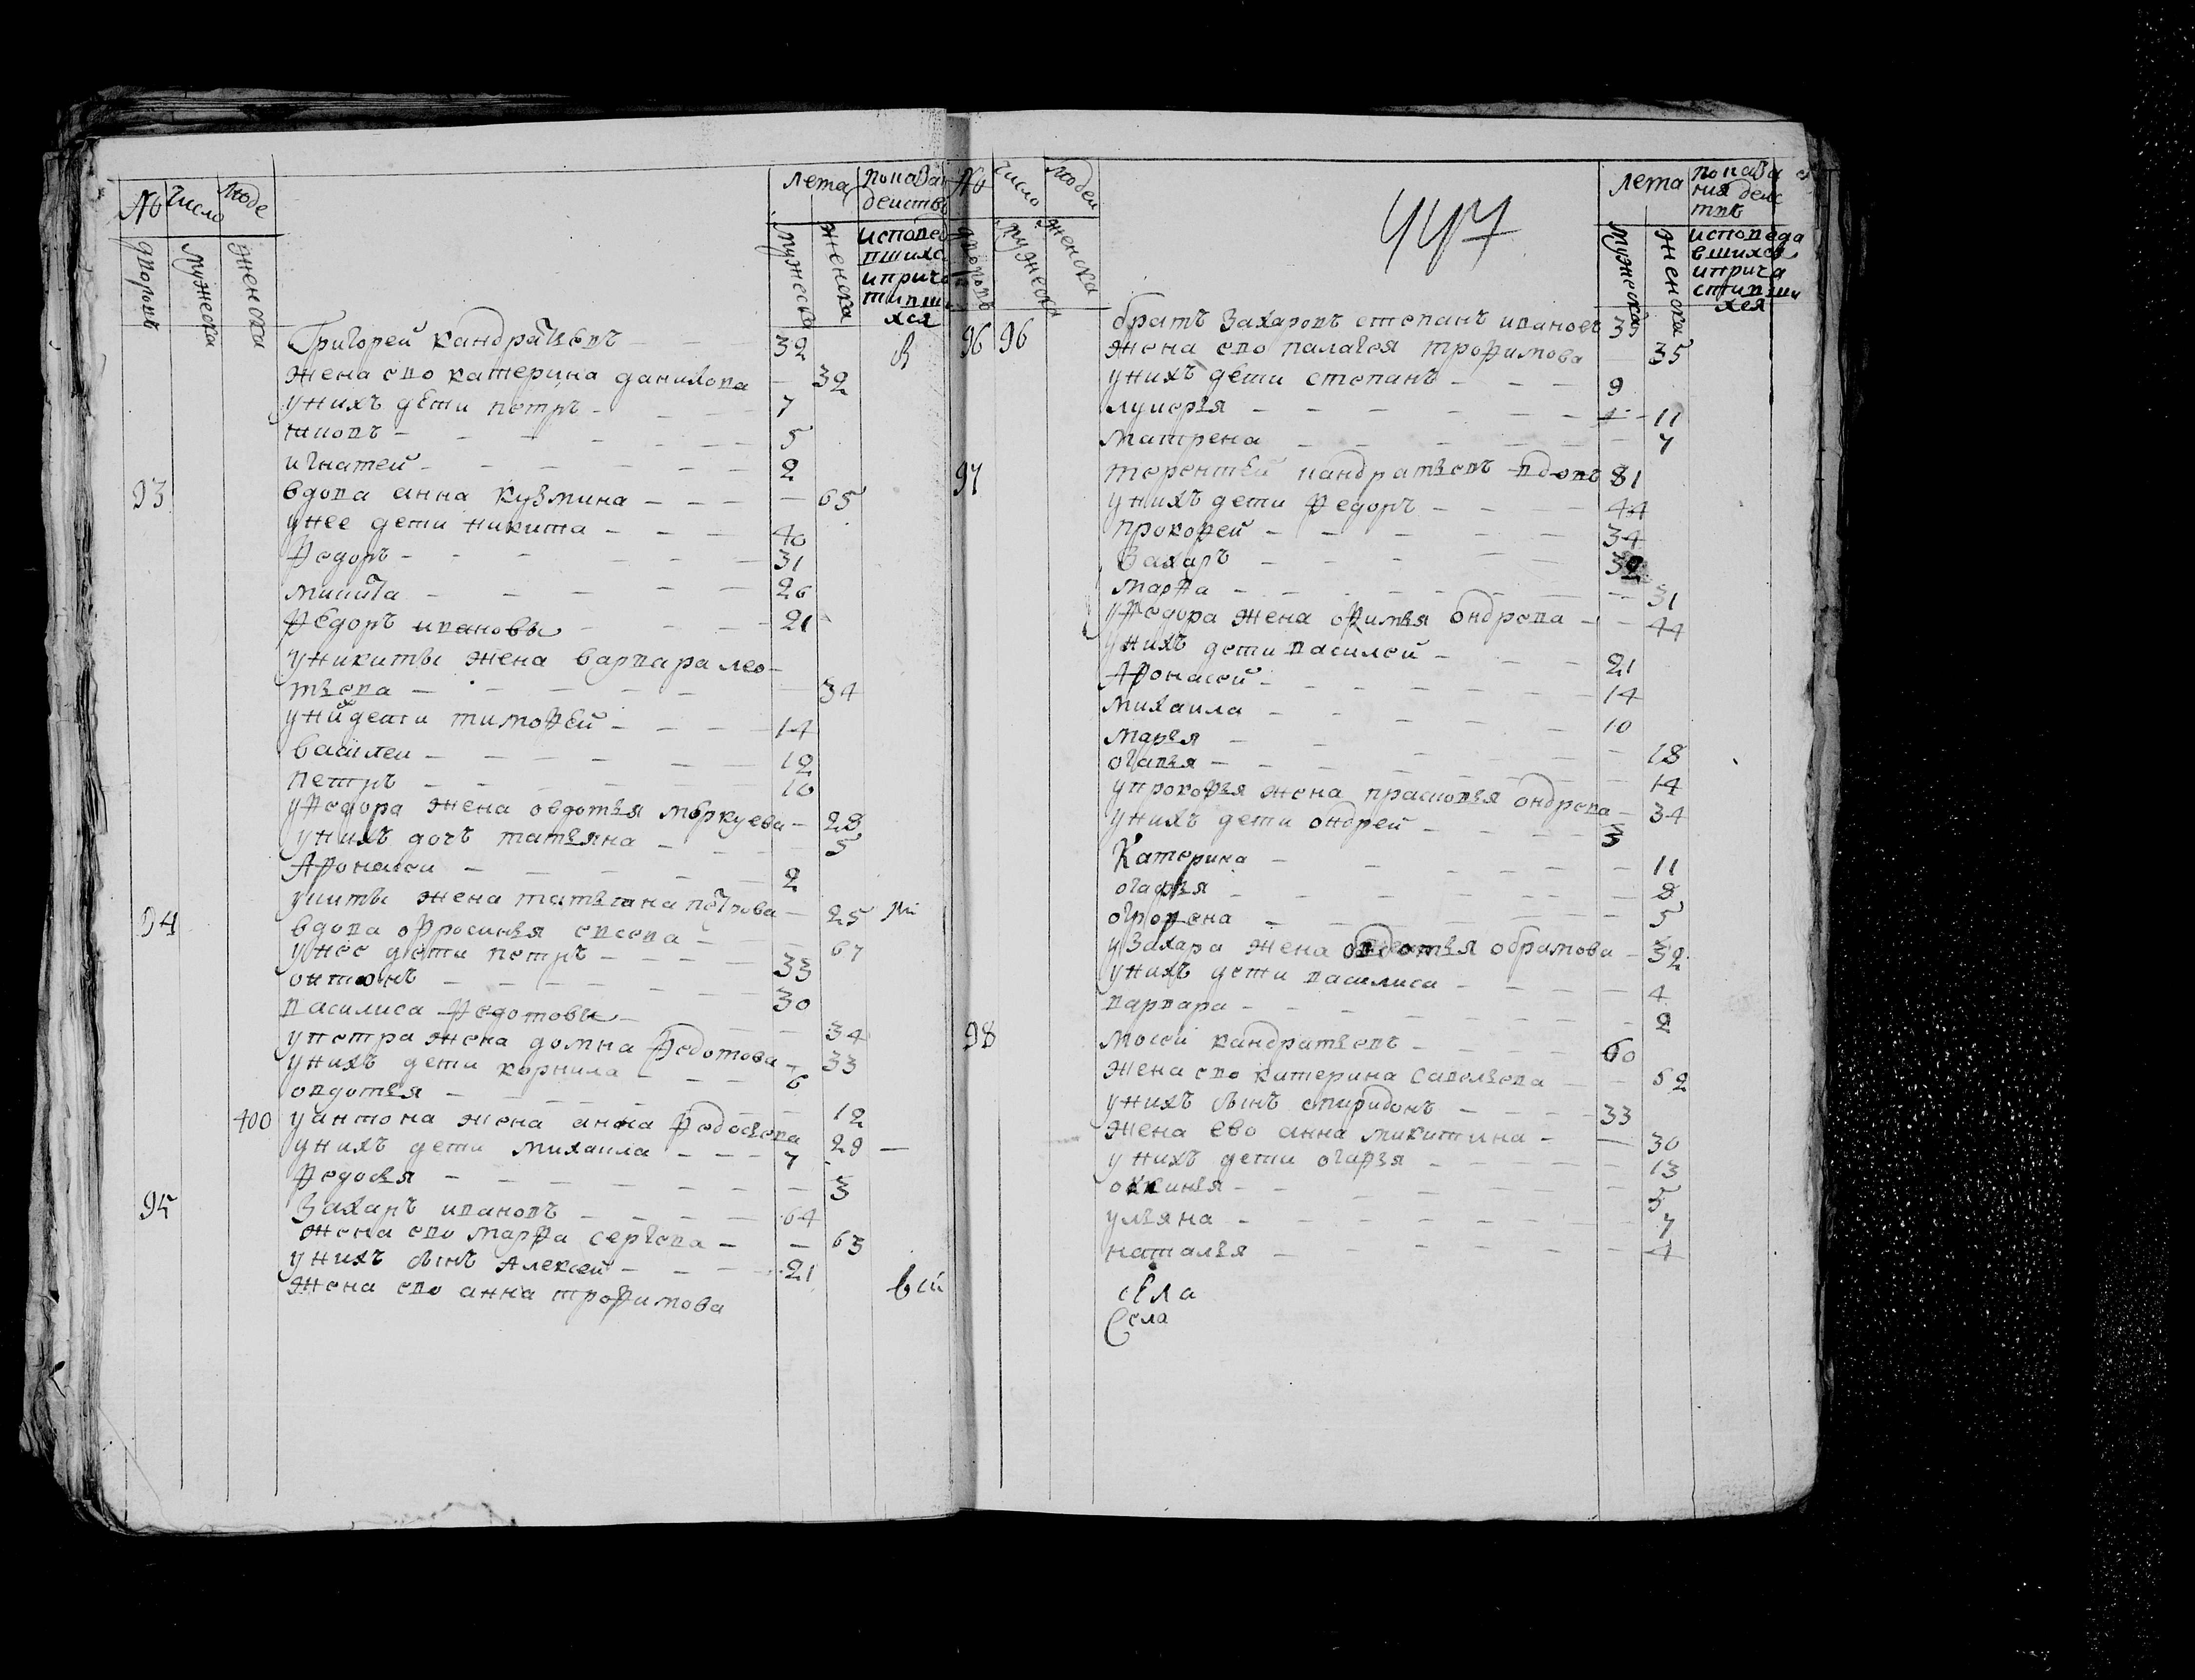 No число люде
лета показан
действъ
дворовъ мужеска женска
мужеска женска
исповед
вшихс
иприча
стивши
хся
Григорей кандратьевъ 32
жена ево катерина данилова 32
унихъ дети петръ 7
5
игнатей 2
93 вдова анна кузмина 65
унее дети никита 40
Федоръ 31
микита 26
Федоръ ивановы 21
уникиты жена варвара лео
тьева 34
уних дети тимофей 14
василеи 12
петръ 10
уфедора жена овдотья маркуева 28
унихъ дочь татьяна 5
Афонасеи 2
жена татьяна петрова 25
94 вдова офросинья евсева 67
унее дети петръ 33
онтонъ 30
василиса федотовы 34
упетра жена домна федотова 33
унихъ дети корнила 6
овдотья 12
400 уантона жена анна федосеева 28
унихъ дети михаила 7
федосья 3
95 Захаръ ивановъ 64
жена ево марфа сергева 63
унихъ сынъ Алексей 21
жена ево анна трофимова
No число людей
447
лета показа
ния дейс
твъ
дворовъ мужеска женска
мужеска женска
исповеда
вшихся
иприча
стивши
хся
96 96 братъ Захаровъ степанъ ивановъ 35
жена ево палагея трофимова 35
унихъ дети степанъ 9
лукерья 11
матрена 7
97 терентей кандратьевъ вдовъ 81
унихъ дети федоръ 44
прокофей 34
Захаръ 32
марфа 31
уфедора жена офимья ондрева 44
унихъ дети василей 21
Афонасей 14
михаила 10
марья 18
огафья 14
упрокофья жена прасковья ондрева 34
унихъ дети ондрей 3
Катерина 11
огафья 8
огрофена 5
уЗахара жена овдотья обрамова 32
унихъ дети василиса 4
варвара 2
98 мосей кандратьевъ 60
жена ево катерина савельева 52
унихъ сынъ спиридонъ 33
жена ево анна микитина 30
унихъ дети огафья 13
оксинья 5
ульяна 7
наталья 4
села
Села